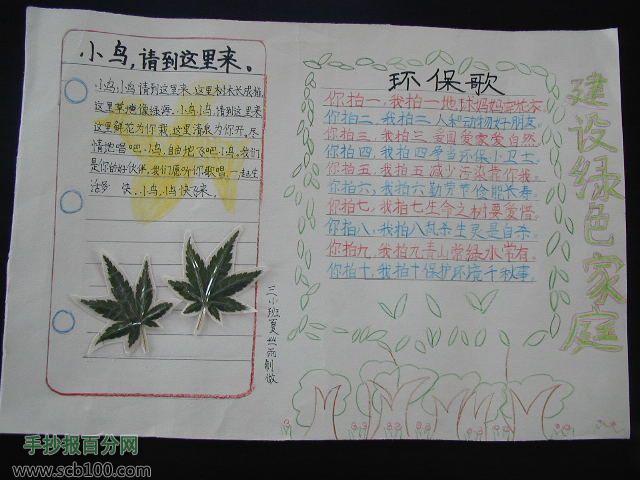 小鸟,请到这里来。
小鸟,小鸟,请到这里来,这里树木长成林,
这里草地像绿海。小鸟,小鸟,请到这里来
这里鲜花为你栽,这里清泉为你开,尽
情地唱吧,小鸟,自由地飞吧,小鸟,我们
是你的好伙伴,我们愿听你歌唱,一起生
快,小鸟,小鸟快来。
三小班夏
制做
环保歌
你拍一,我拍一地球妈妈
你拍二,我拍二人和动物好朋友。
你拍三,我拍三爱国爱家爱自然。
你拍四,我拍四争当环保小卫士。
你拍五,我拍五减少污染靠你我。
你拍六,我拍六勤劳节俭能长寿。
你拍七,我拍七生命之树要爱惜。
你拍八,我拍八乱杀生灵是自杀。
你拍九,我拍九青山常绿水常有。
你拍十,我拍十保护环境千秋事。
建设绿色家庭
手抄报百分网
www.scb100.com